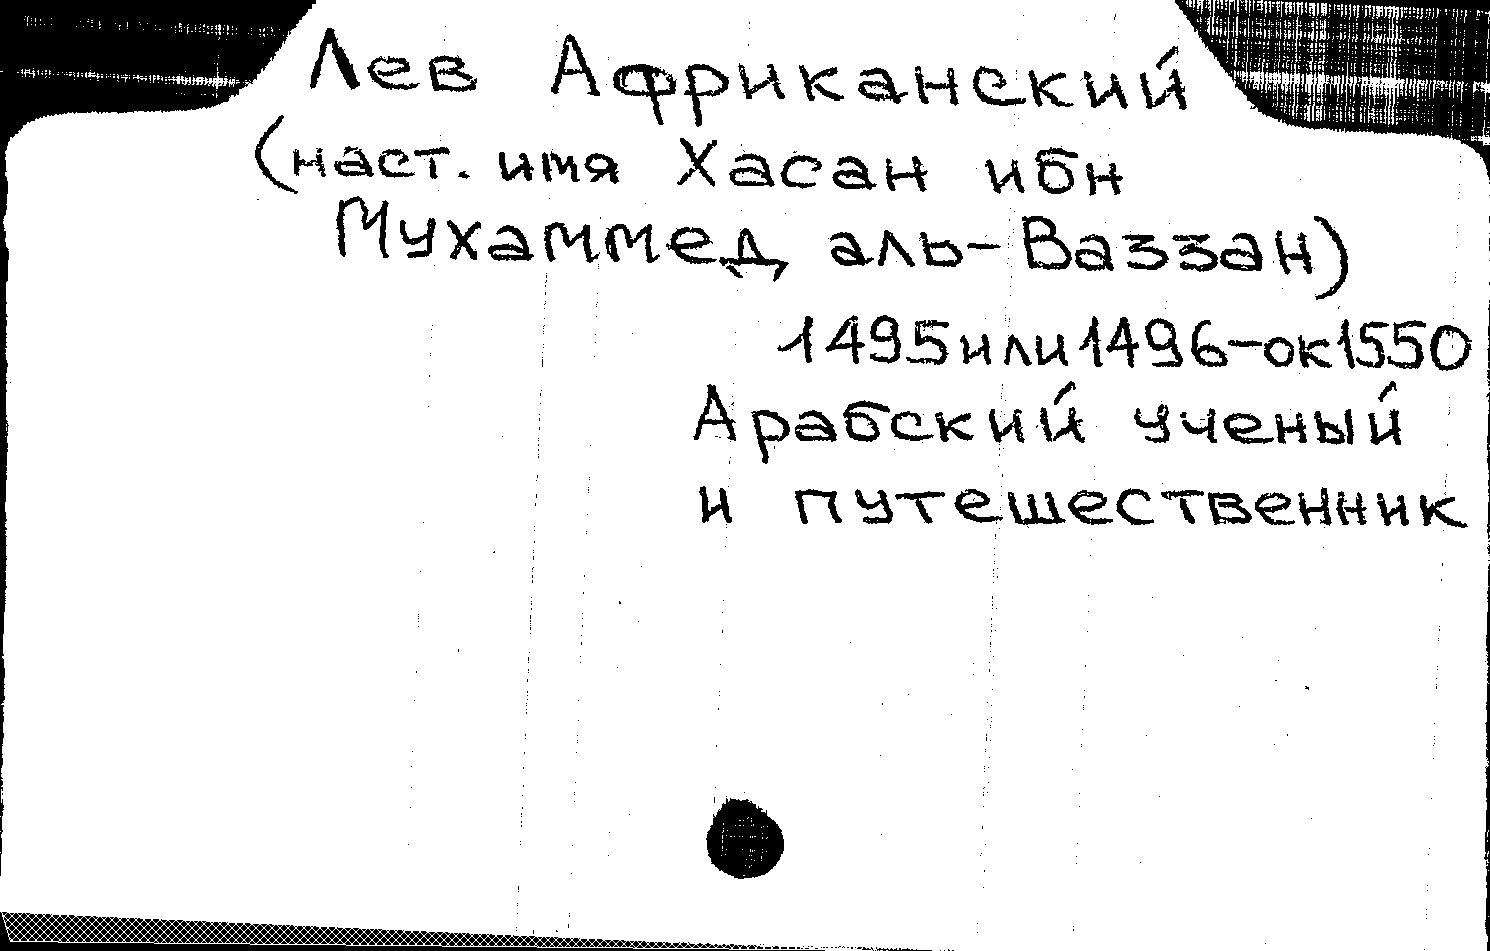 Лев Африканский
(наст. имя Хасан ибн
Мухаммед аль-Ваззан)
1495 или 1496-ок 1550
Арабский ученый
и путешественник